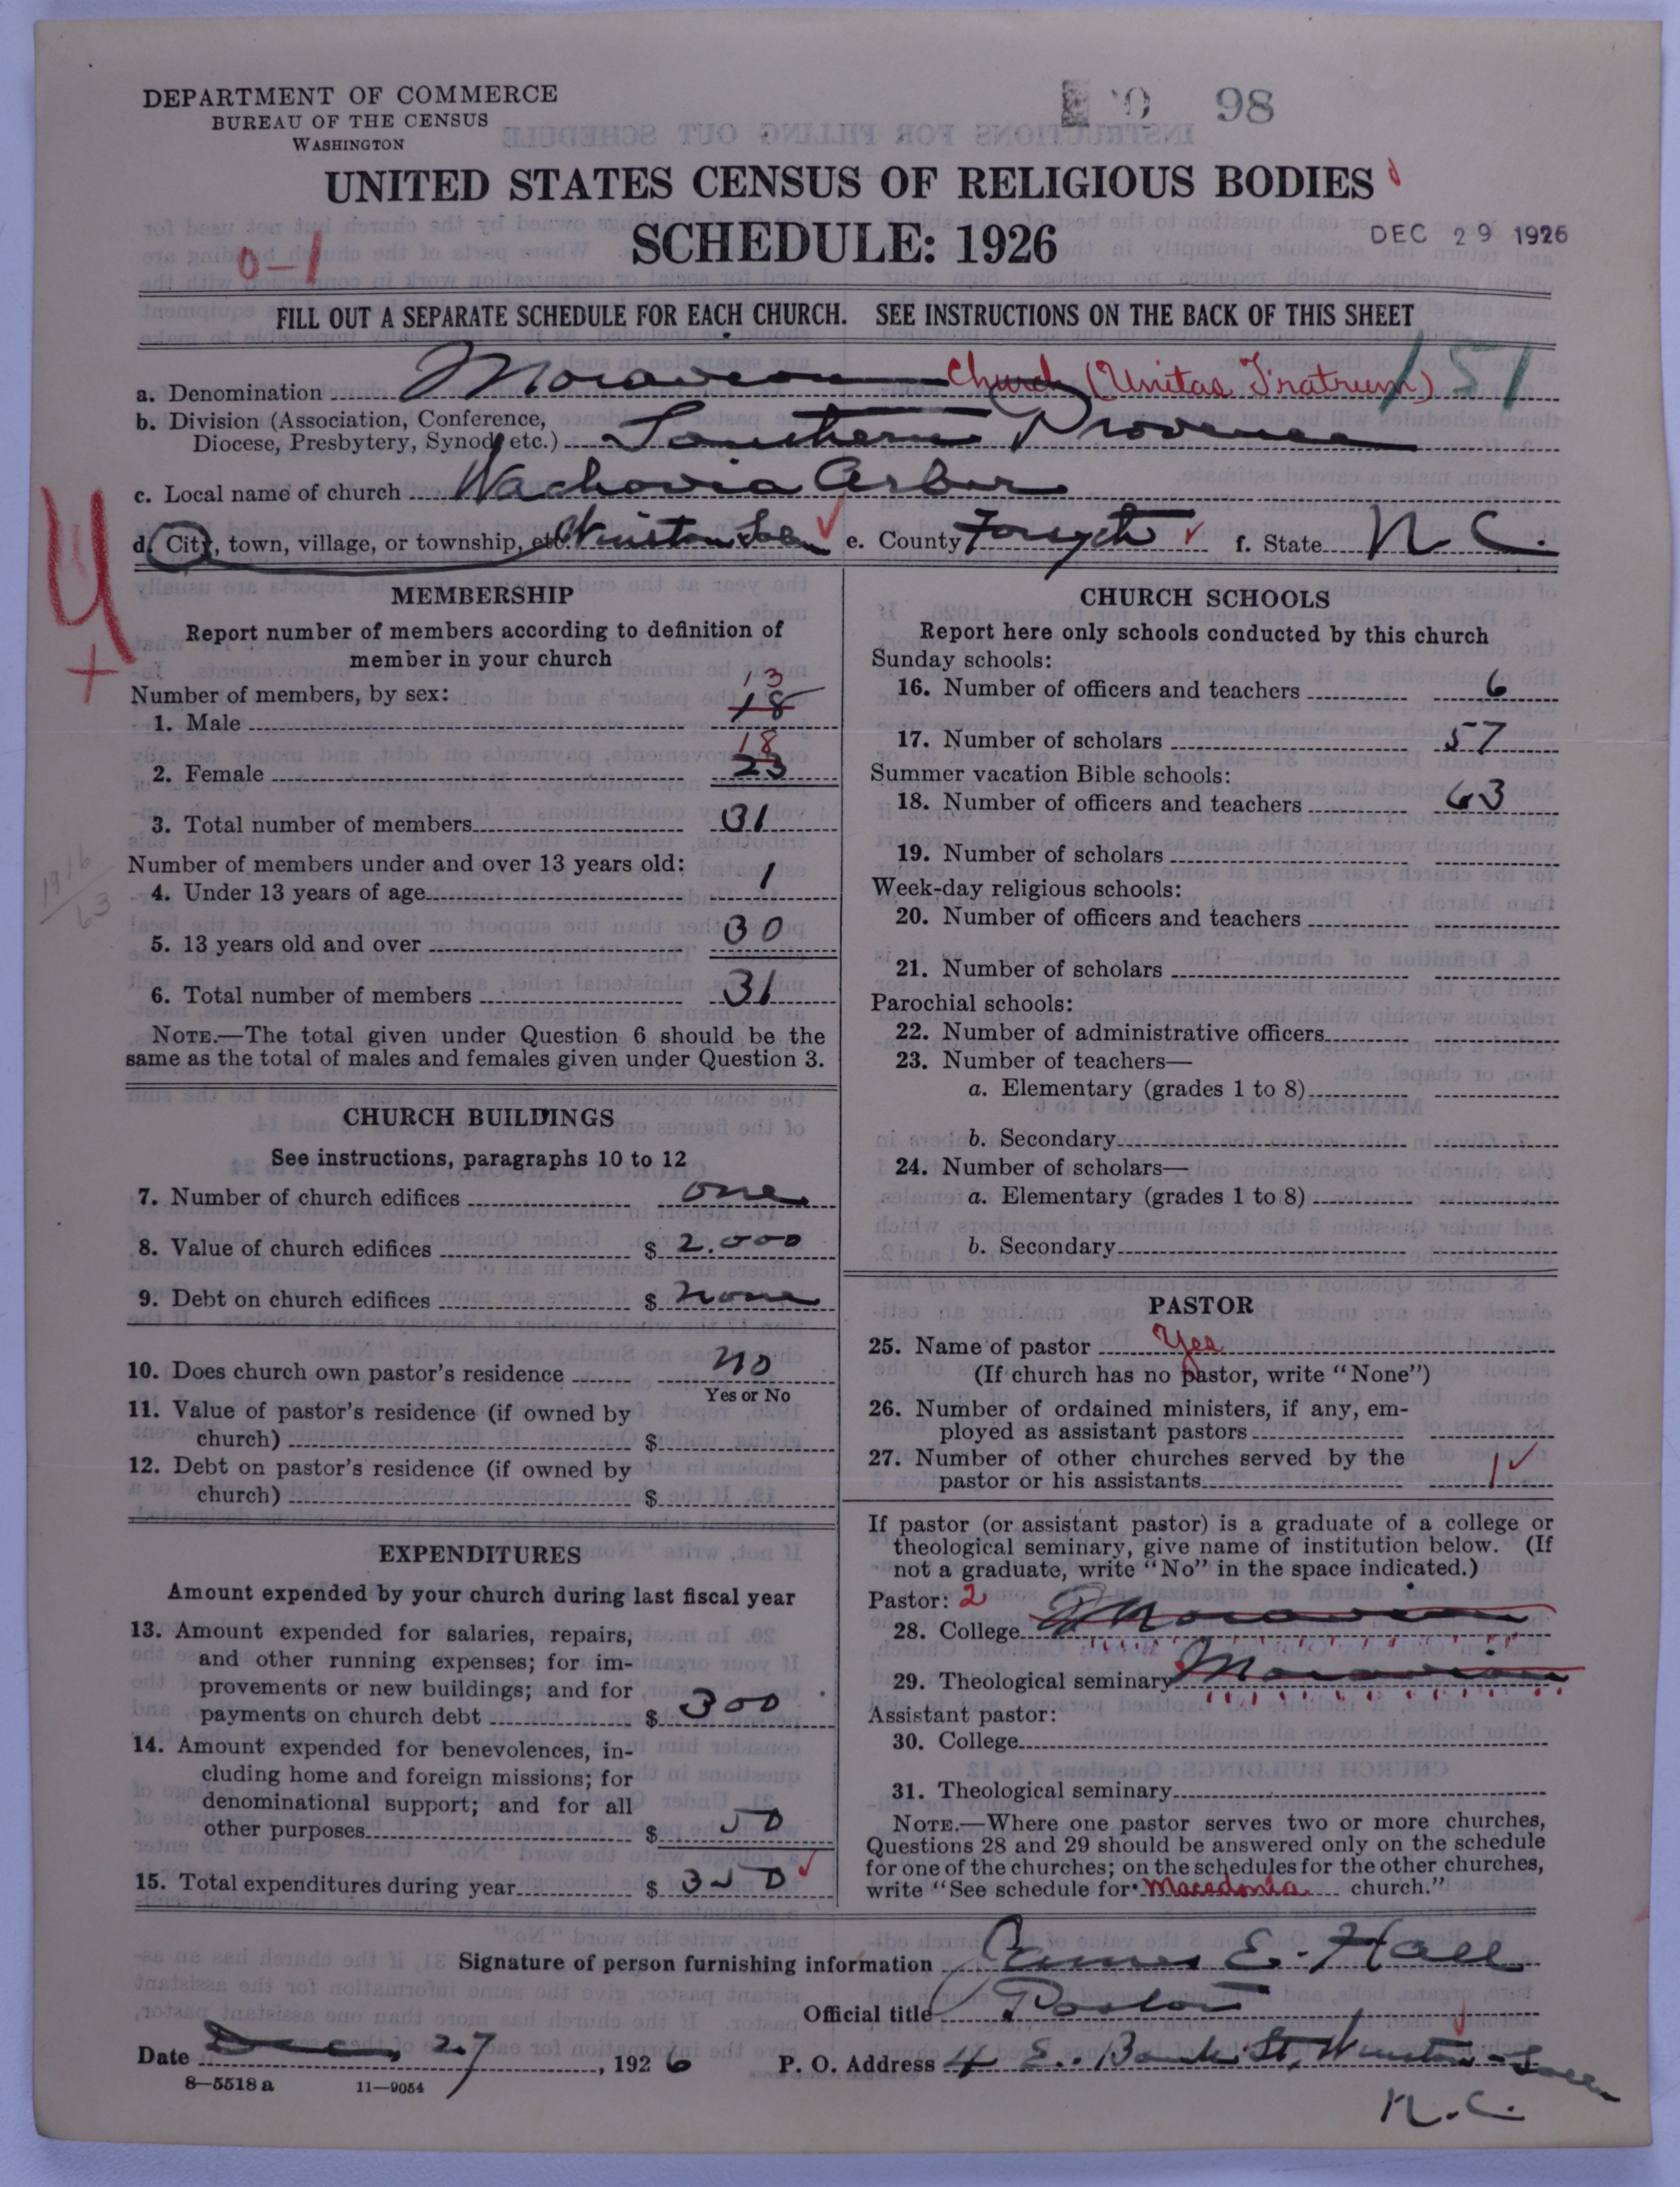 DEPARTMENT OF COMMERCE
BUREAU OF THE CENSUS
WASHINGTON
98
UNITED STATES CENSUS OF RELIGIOUS BODIES
SCHEDULE: 1926
DEC 29 1926
0-1
FILL OUT A SEPARATE SCHEDULE FOR EACH CHURCH. SEE INSTRUCTIONS ON THE BACK OF THIS SHEET
a. Denomination Moravian Church (Unitas Fratrum) 151
b. Division (Association, Conference,
Diocese, Presbytery, Synod, etc.) Southern Province
c. Local name of church Wachovia Arbor
d. City, town, village, or township, etc. Winston Salem e. County Forsyth f. State N. C.
MEMBERSHIP
Report number of members according to definition of
member in your church
Number of members, by sex:
13
1. Male 18
18
2. Female 23
3. Total number of members 31
Number of members under and over 13 years old:
4. Under 13 years of age 1
1916
63
5. 13 years old and over 30
6. Total number of members 31
NOTE.—The total given under Question 6 should be the
same as the total of males and females given under Question 3.
CHURCH BUILDINGS
See instructions, paragraphs 10 to 12
7. Number of church edifices one
8. Value of church edifices $ 2.000
9. Debt on church edifices $ none
10. Does church own pastor's residence no
Yes or No
11. Value of pastor's residence (if owned by
church) $
12. Debt on pastor's residence (if owned by
church) $
EXPENDITURES
Amount expended by your church during last fiscal year
13. Amount expended for salaries, repairs,
and other running expenses; for im-
provements or new buildings; and for
payments on church debt $ 300
14. Amount expended for benevolences, in-
cluding home and foreign missions; for
denominational support; and for all
other purposes $ 50
15. Total expenditures during year $ 350
CHURCH SCHOOLS
Report here only schools conducted by this church
Sunday schools:
16. Number of officers and teachers 6
17. Number of scholars 57
Summer vacation Bible schools:
18. Number of officers and teachers 63
19. Number of scholars
Week-day religious schools:
20. Number of officers and teachers
21. Number of scholars
Parochial schools:
22. Number of administrative officers
23. Number of teachers—
a. Elementary (grades 1 to 8)
b. Secondary
24. Number of scholars—
a. Elementary (grades 1 to 8)
b. Secondary
PASTOR
25. Name of pastor Yes
(If church has no pastor, write "None")
26. Number of ordained ministers, if any, em-
ployed as assistant pastors
27. Number of other churches served by the
pastor or his assistants 1
If pastor (or assistant pastor) is a graduate of a college or
theological seminary, give name of institution below. (If
not a graduate, write "No" in the space indicated.)
Pastor: 2
28. College Moravian
29. Theological seminary Moravian
Assistant pastor:
30. College
31. Theological seminary
NOTE.—Where one pastor serves two or more churches,
Questions 28 and 29 should be answered only on the schedule
for one of the churches; on the schedules for the other churches,
write "See schedule for Macedonia church."
Signature of person furnishing information James E. Hall
Official title Pastor
Date Dec. 27, 1926 P. O. Address 4 E. Bank St, Winston-Salem
N. C.
8—5518 a 11—9054